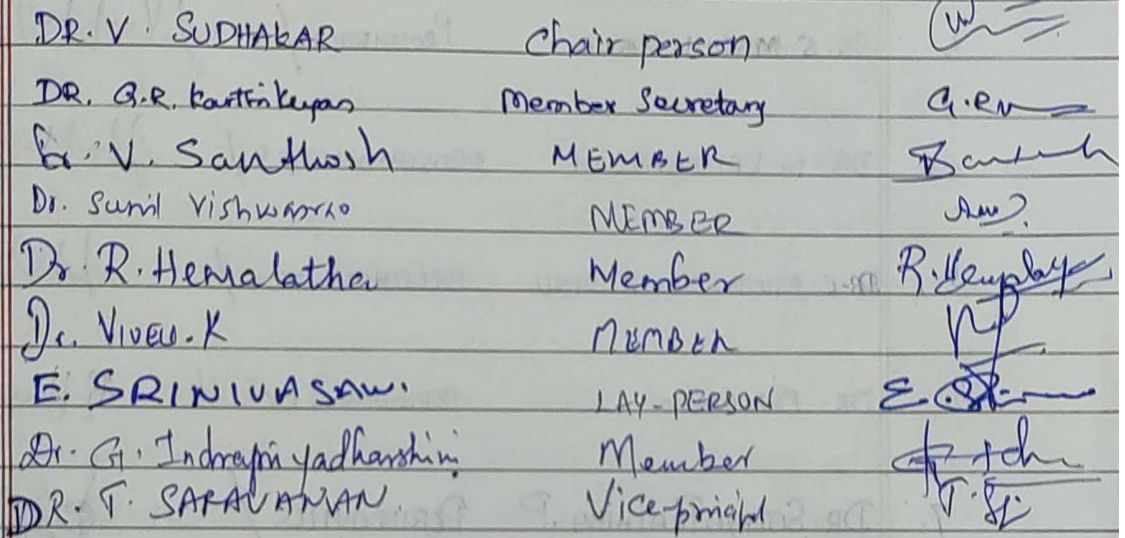 DR. V. SUDHAKAR Chair person
DR. G.R. Karthikeyan Member Secretary G.R
Er. V. Santhosh MEMBER
Dr. Sunil Vishwanath MEMBER
Dr R. Hemalatha Member R. Hemalatha
Dr. VIVEK. K MEMBER
E. SRINIVASAN. LAY-PERSON E.
Dr. G. Indrapriyadharshini Member
DR. T. SARAVANAN. Vice-principal T.